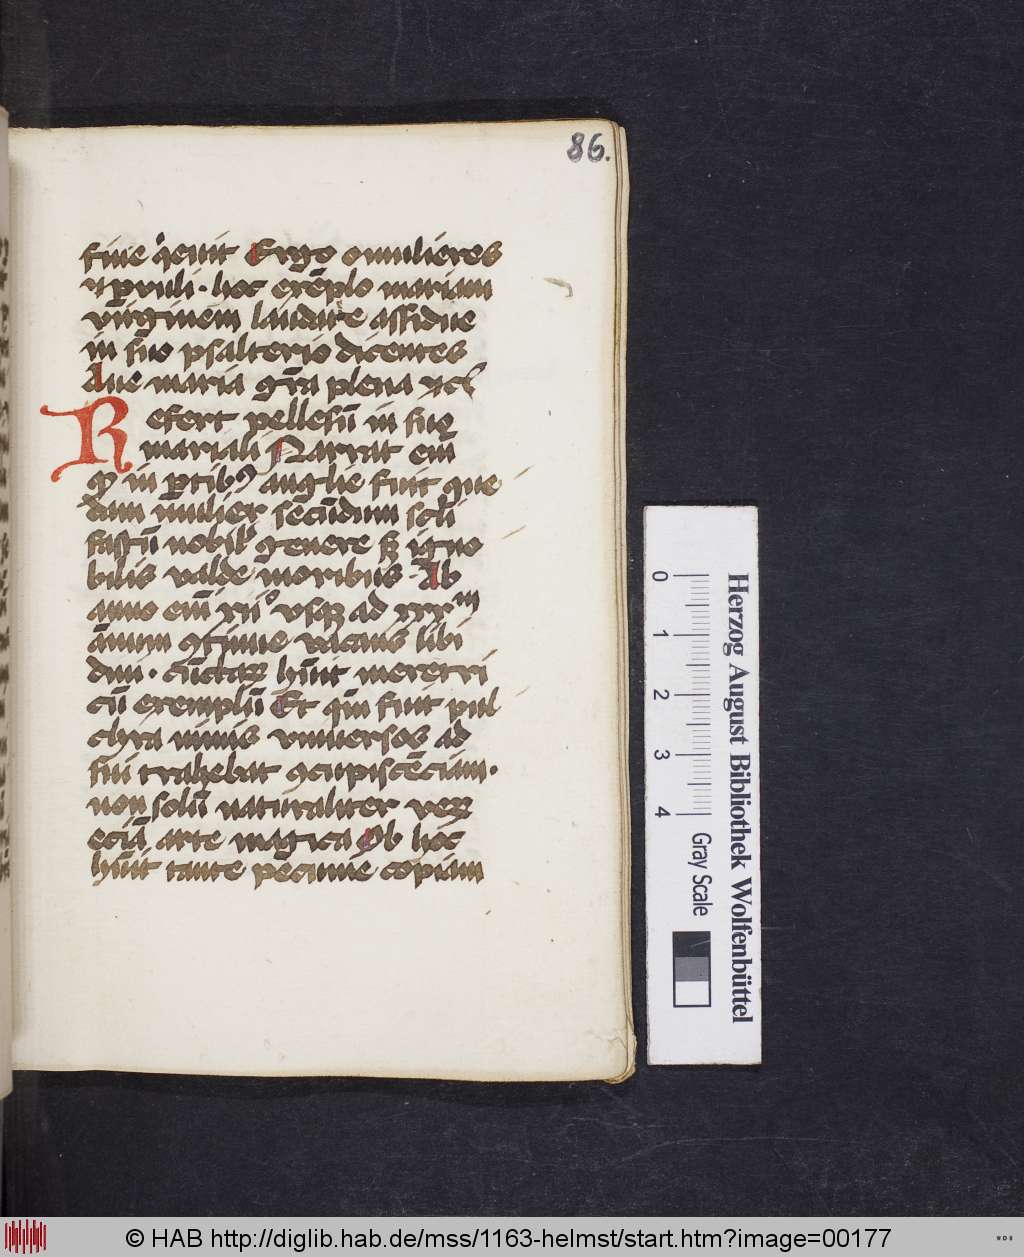 86.
fine q̊euit Ergo o mulieres
⁊ p̱uuli · hoc exēplo mariam
virginem laudate assidue
in suo psalterio dicentes
Aue maria gr̄a plena ⁊cͣ
Refert pellefū in suo
mariali Narrat em̄
ꝙ in ꝑtibꝰ anglie fuit que
dam mulier secūdum scl̄i
fastū nobil̓ genere sꝫ igno
bilis valde moribus · Ab
anno em̄ xiiº vsqꝫ ad xxxᵐ
ānum ꝯtinue vacans libi
dini · cūctaꝝ hūit meretri
cū exemplū Et qm̄ fuit pul
chra nimis vniuersos ad
sui trahebat ꝯcupiscēciam ·
non solū naturaliter veꝝ
eciā arte magica Ob hoc
hūit tante pecunie copiam
0 1 2 3 4
Gray Scale
Herzog August Bibliothek Wolfenbüttel
© HAB http://diglib.hab.de/mss/1163-helmst/start.htm?image=00177